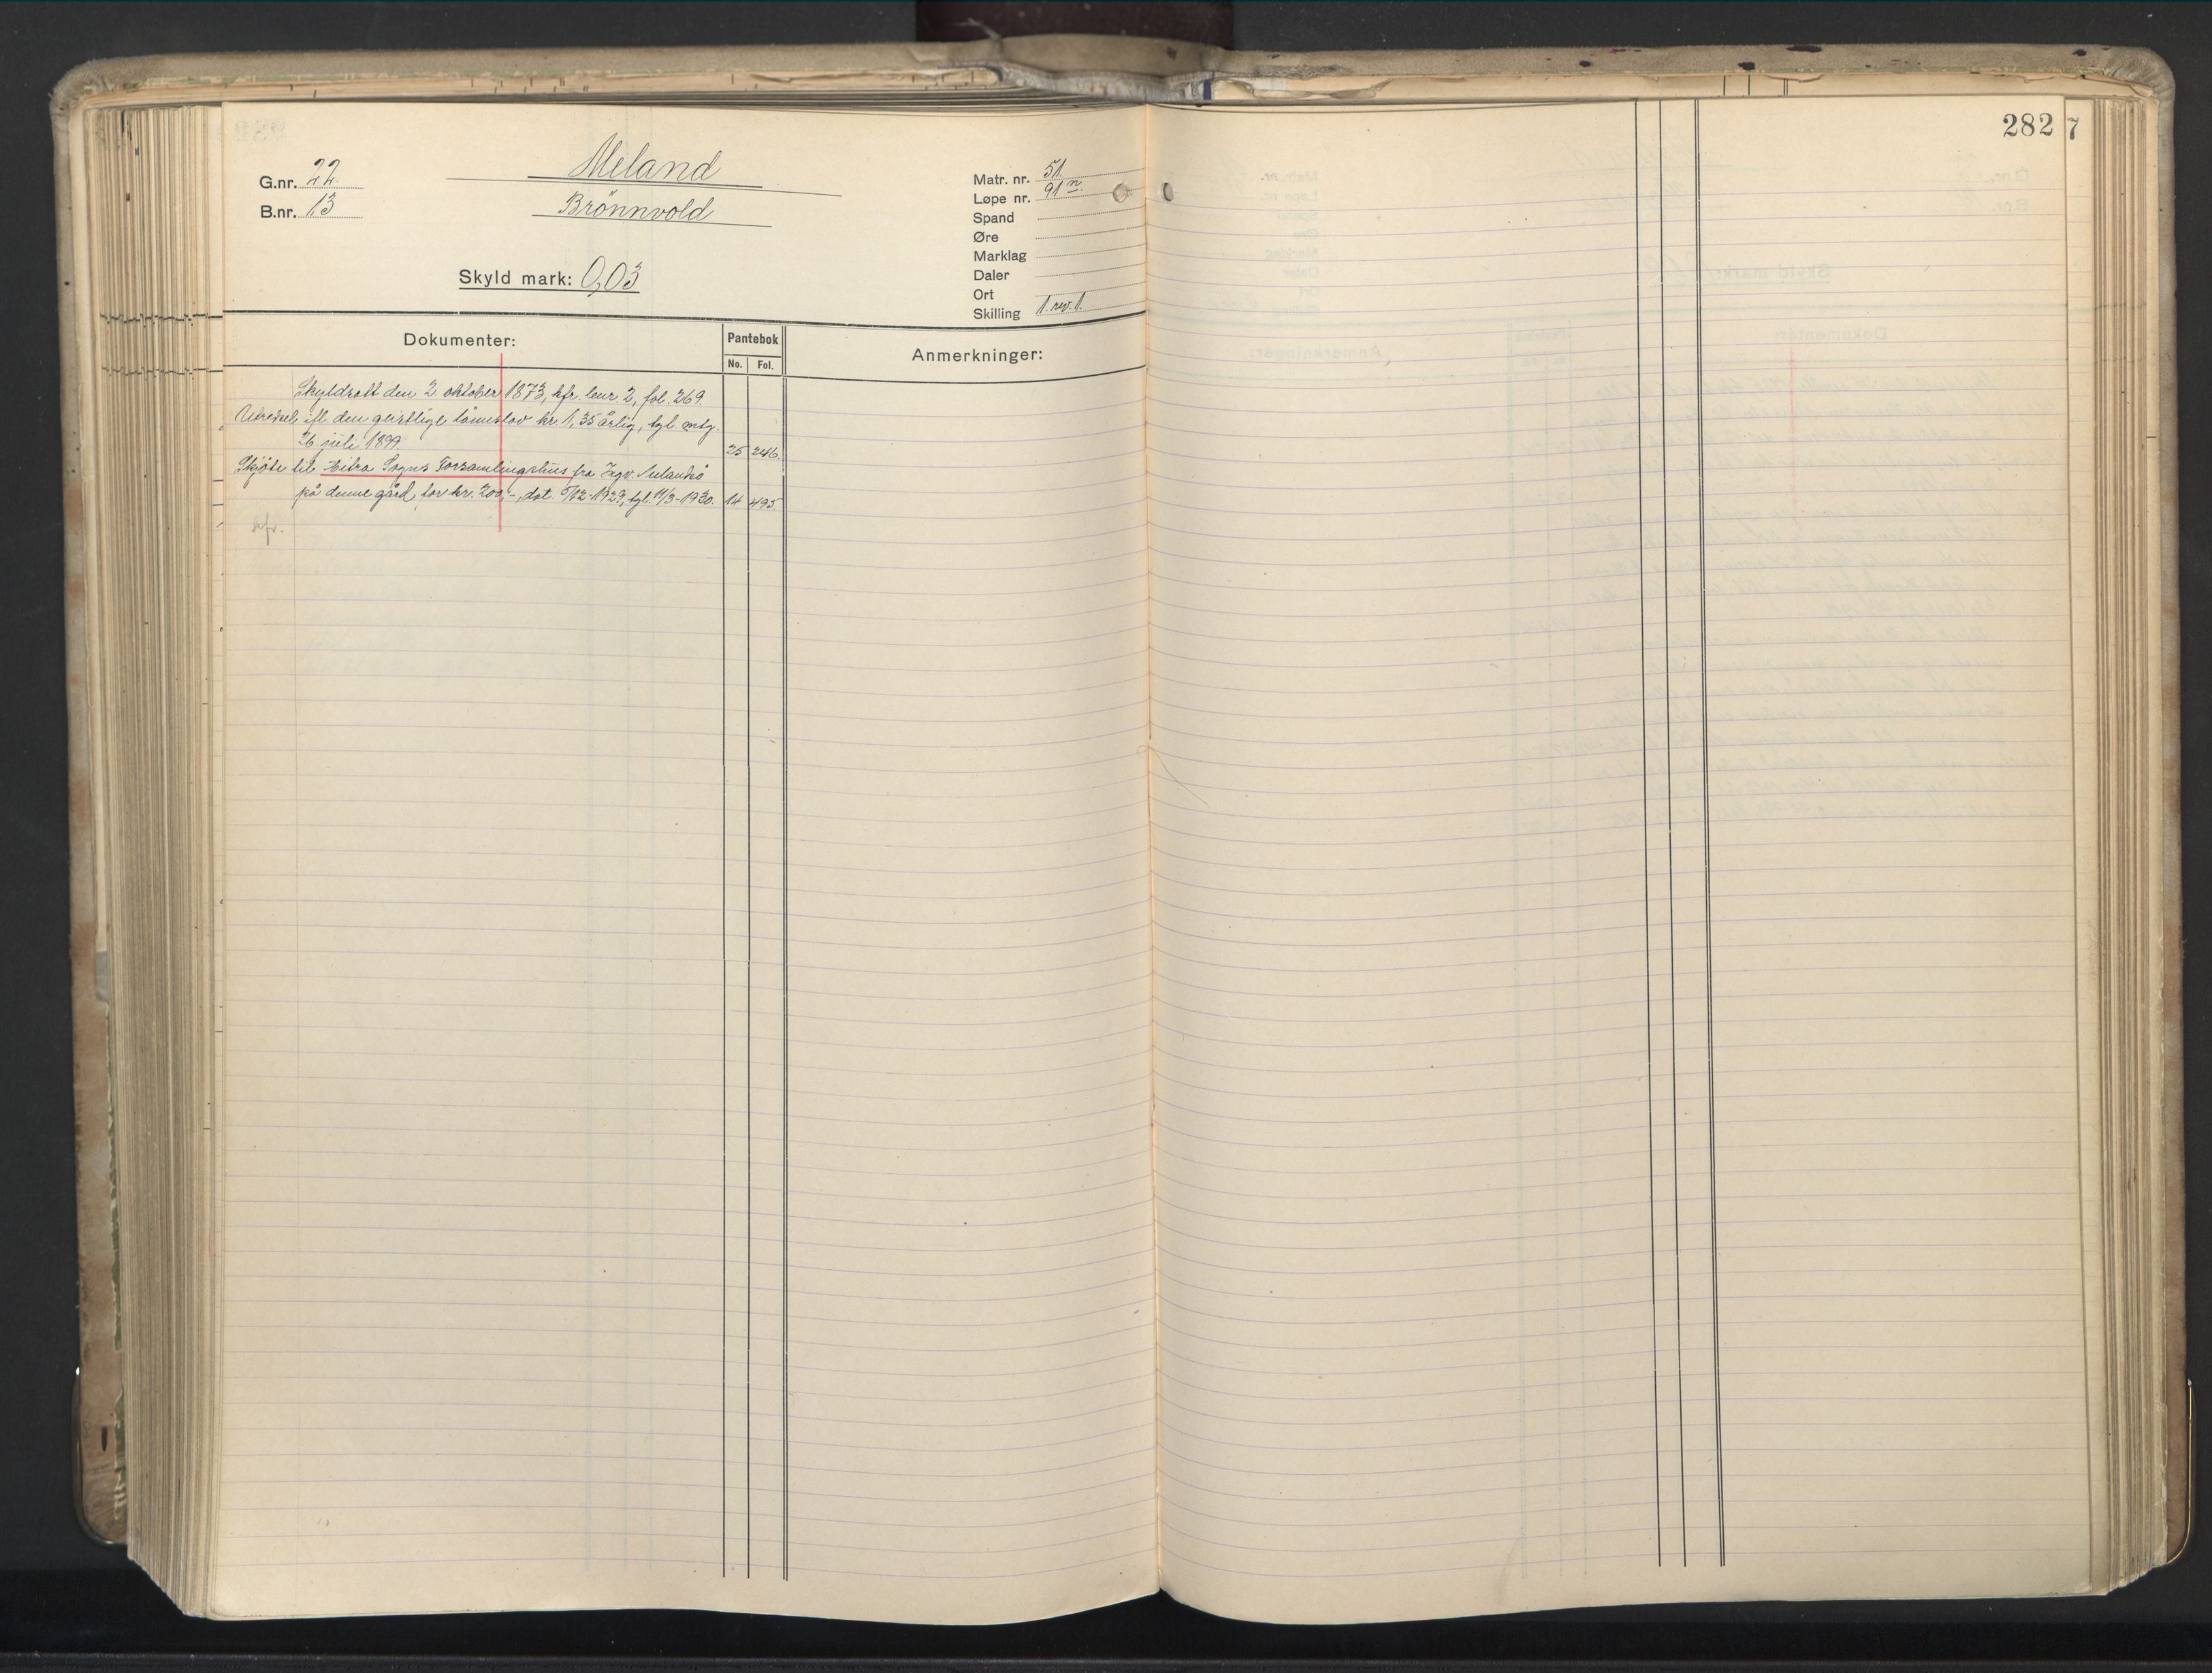 282
7
G.nr. 22.
Meland
B.nr. 13
Brönnvold
Matr. nr. 51.
Løpe nr. 91 n.
Spand
Øre
Marklag
Daler
Ort
Skilling 1. rev. 1.
Skyld mark: 0,03
Dokumenter:
Pantebok
No. Fol.
Anmerkninger:
Skyldsatt den 2 oktober 1873, kfr. leur. 2, fol. 269.
ifl. den geistlige lönnslov kr 1,35 årlig, tgl. mtg.
26 juli 1899. 25 246.
Skjöte til Hitra Sogns Forsamlingshus fra Ingv.
på denne gård, for kr. 200,-, dat. 5/12-1929, tgl. 11/3-1930. 14 495
kfr.